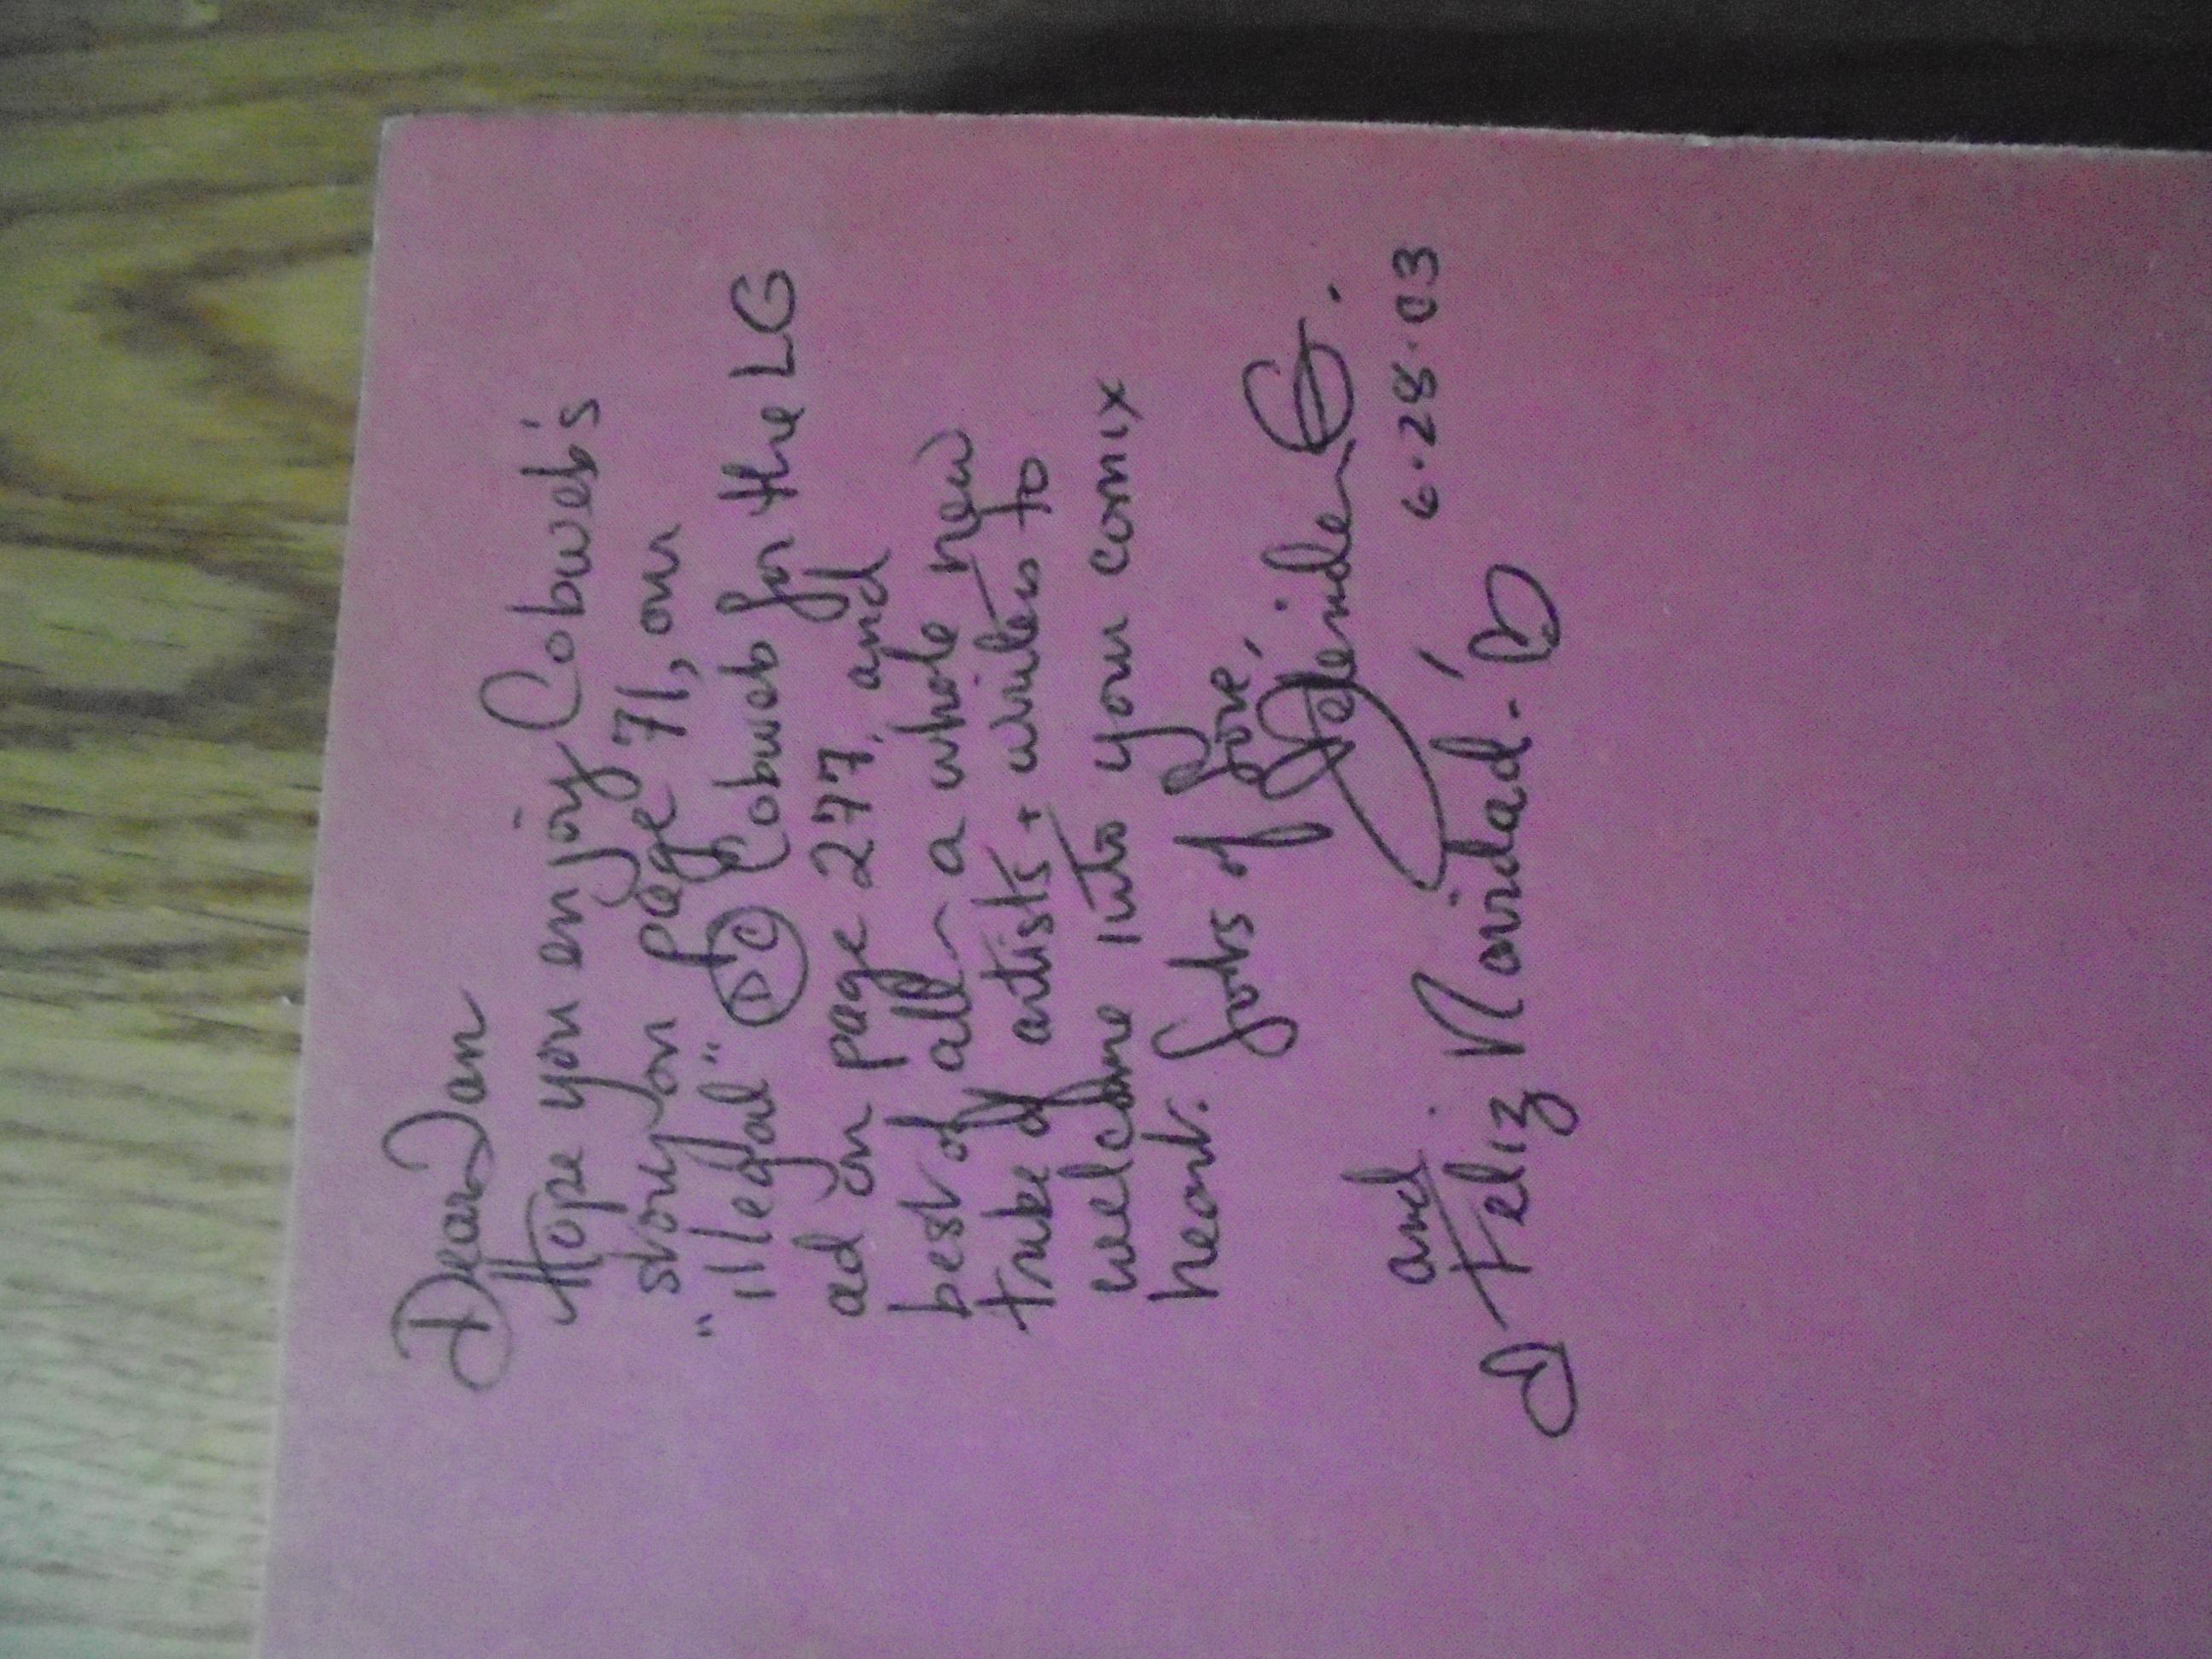 Dear Dan
Hope you enjoy Cobweb's
story on page 71, our
"illegal" DC Cobweb for the LG
ad on page 277, and
best of all – a whole new
tribe of artists + writers to
welcome into your comix
heart. Lots of love,
Melinda G.
6·28·03
and
Feliz Navidad.